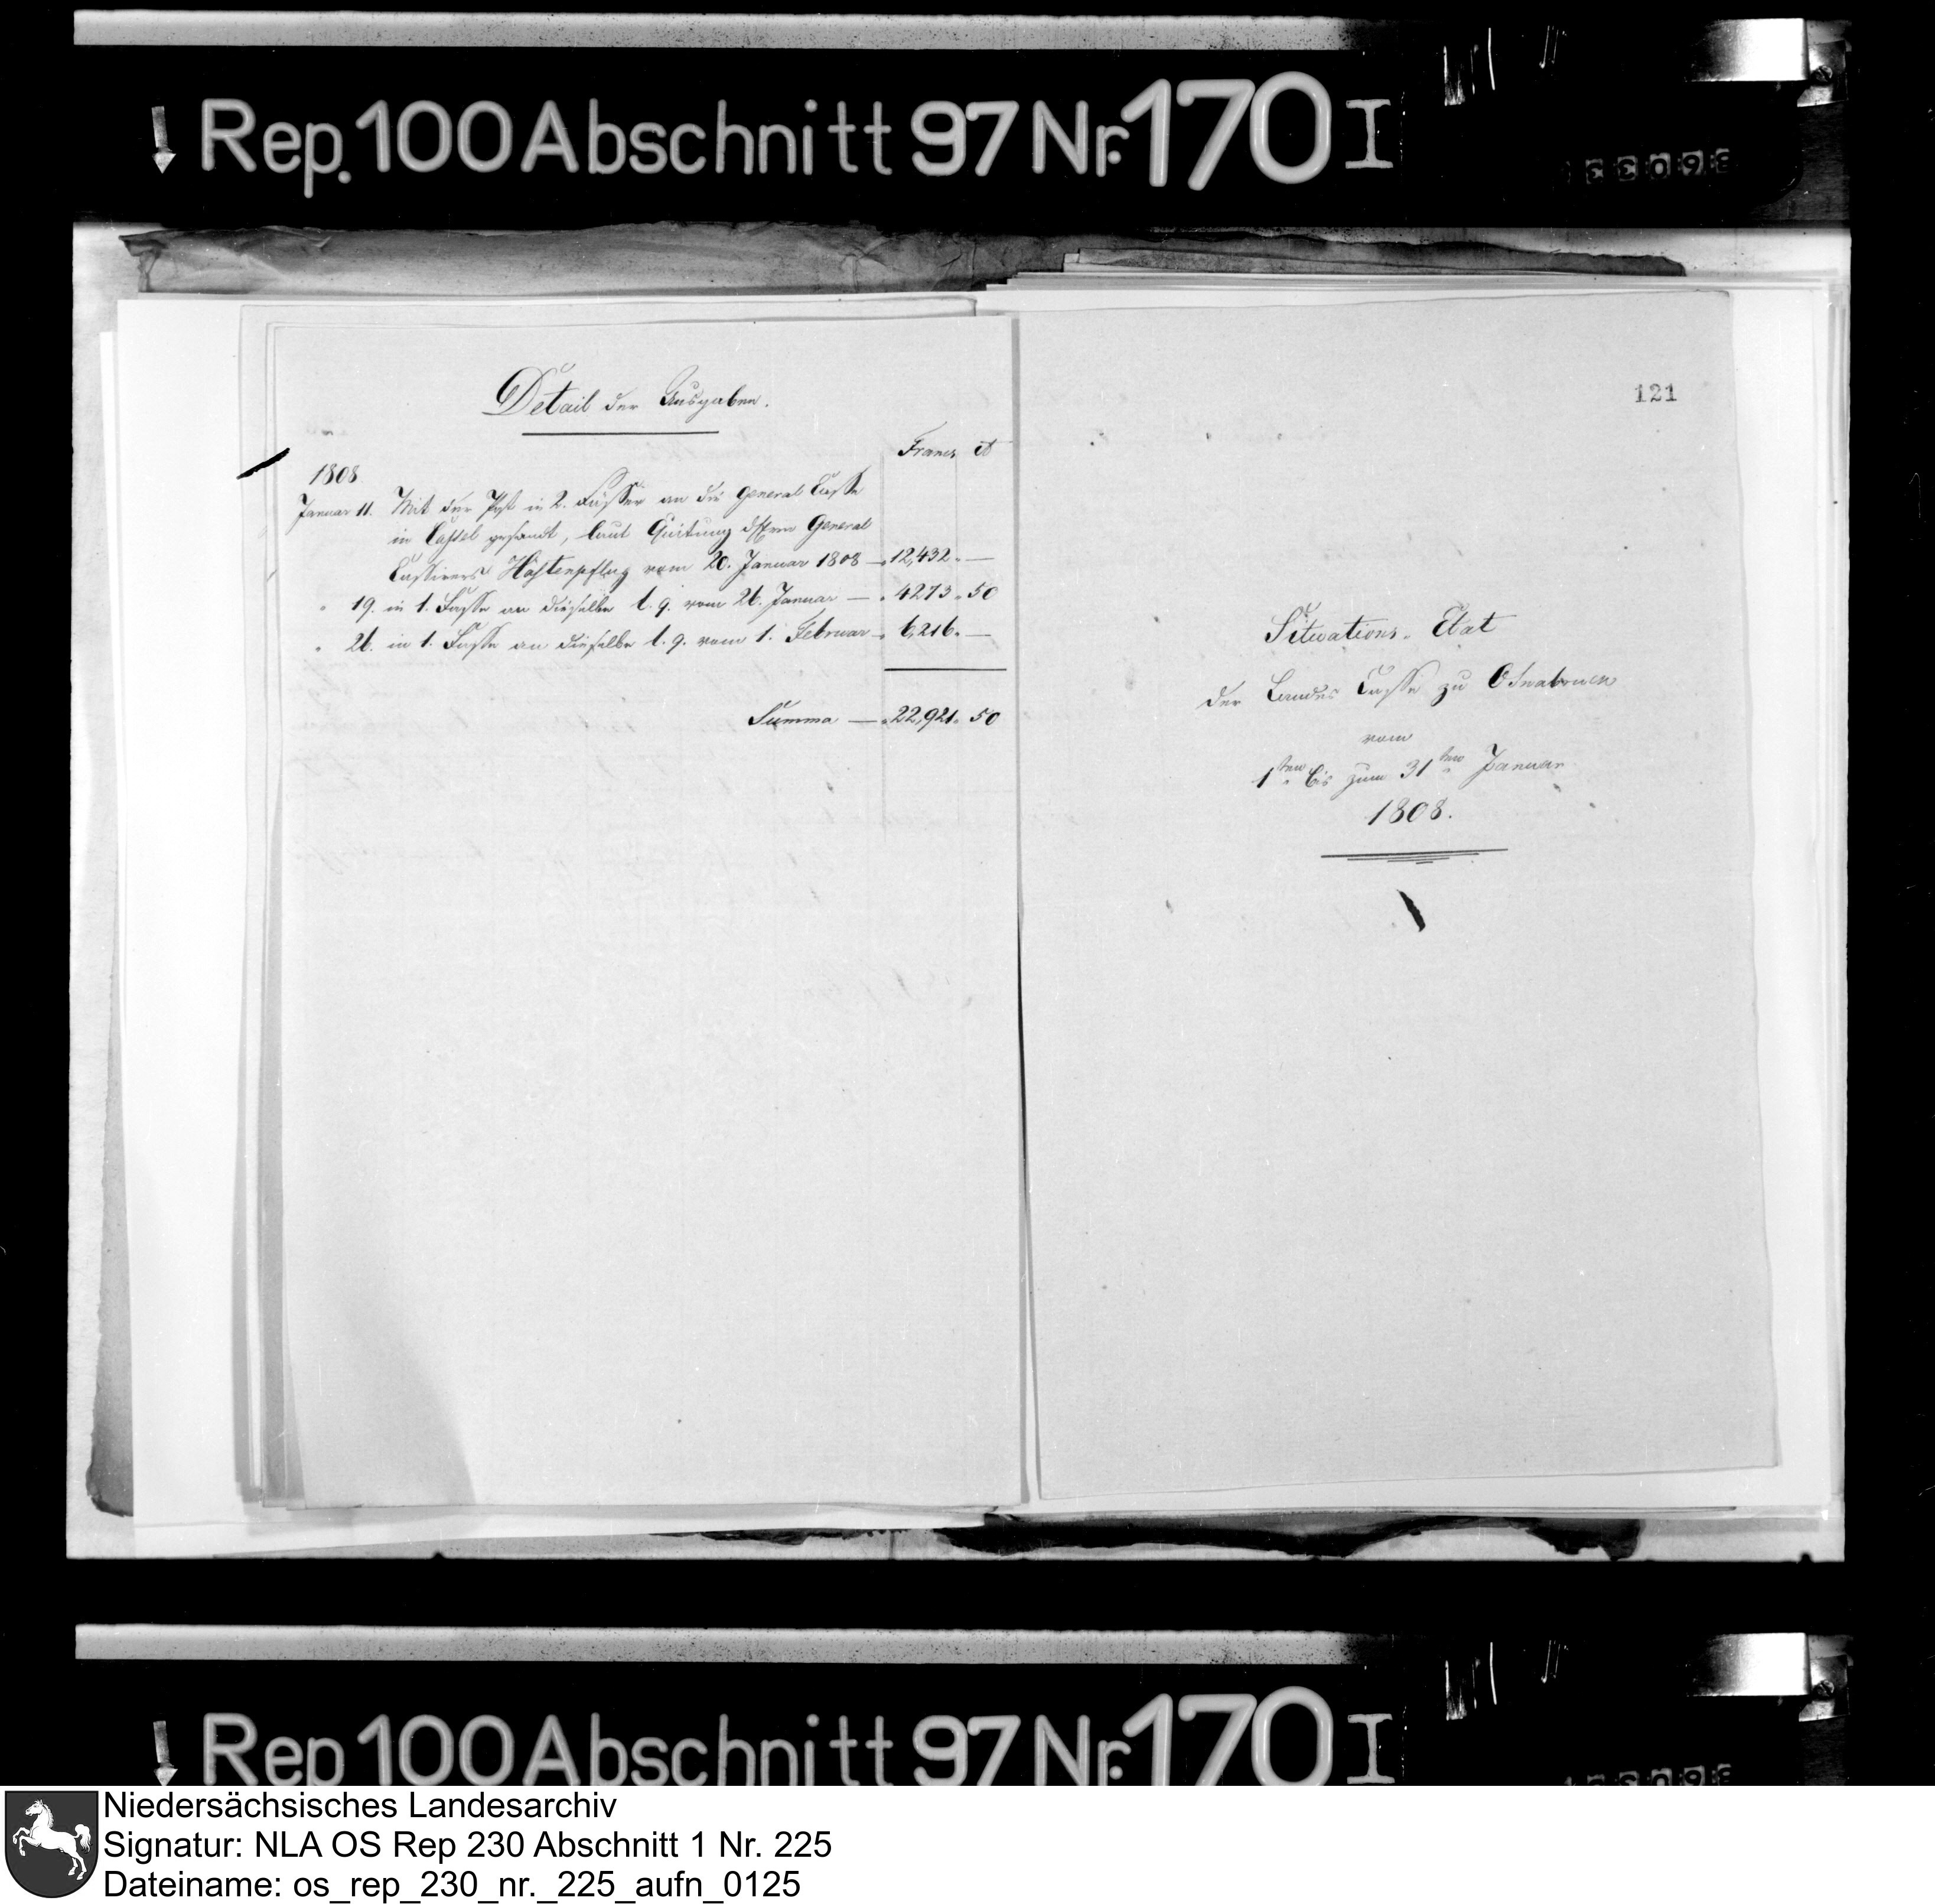 Rep. 100 Abschnitt 97 Nr. 170 I
Detail der Ausgaben.
Francs ct
1808
Januar 11. Mit der Post in 2. Fässer an die General Casse
in Cassel gesandt, laut Quitung des Herrn General
Cassirers Hastenpflug vom 20. Januar 1808 — 12,432. —
" 19. in 1. Fasse an dieselbe l. q. vom 26. Januar — 4273. 50
" 26. in 1. Fasse an dieselbe l. q. vom 1. Februar — 6,216. —
Summa — 22,921. 50
121
Situations-Etat
der Landes Casse zu Osnabrück
vom
1ten bis zum 31ten Januar
1808.
Rep 100 Abschnitt 97 Nr. 170 I
Niedersächsisches Landesarchiv
Signatur: NLA OS Rep 230 Abschnitt 1 Nr. 225
Dateiname: os_rep_230_nr._225_aufn_0125